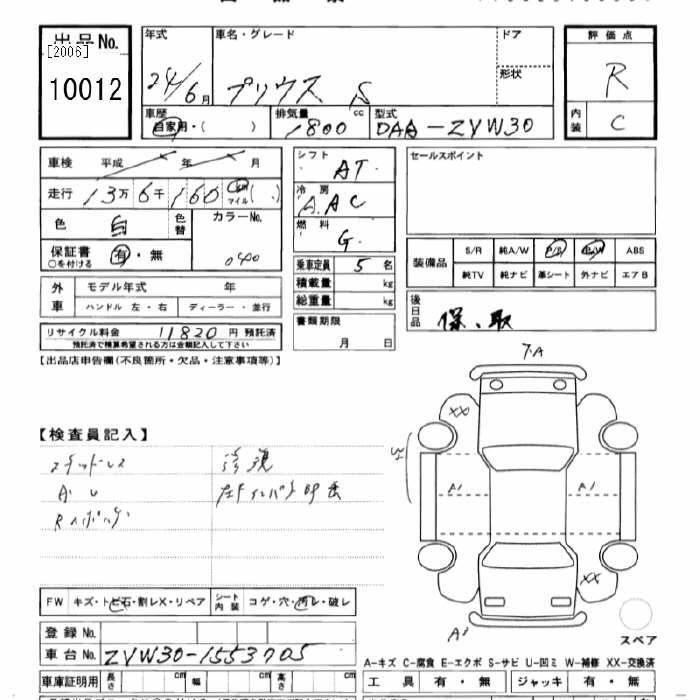 出品No.
[2006]
10012
年式
24/6月
車名・グレード
プリウス S
ドア
形状
評価点
R
内装
C
車歴
自家用・( )
排気量
1800 cc
型式
DAA-ZVW30
車検 平成 年 月
走行 13万 6千 160 km マイル ( )
色 白 色替
カラーNo.
040
保証書 有・無
○を付ける
外車
モデル年式 年
ハンドル 左・右 ディーラー・並行
リサイクル料金 11820 円 預託済
預託済で精算希望される方は金額記入して下さい
シフト AT
冷房 A.AC
燃料 G
乗車定員 5 名
積載量 kg
総重量 kg
書類期限
月 日
セールスポイント
装備品
S/R 純A/W P/S P/W ABS
純TV 純ナビ 革シート 外ナビ エアB
後日品
保、取
【出品店申告欄(不良箇所・欠品・注意事項等)】
【検査員記入】
スタッドレス
A U
FW キズ・トビ石・割レX・リペア シート内装 コゲ・穴・汚レ・破レ
登録No.
車台No. ZVW30-1553705
車庫証明用 長さ cm 幅 cm 高さ cm
XX
A1
A1
XX
スペア
A-キズ C-腐食 E-エクボ S-サビ U-凹ミ W-補修 XX-交換済
工具 有・無 ジャッキ 有・無